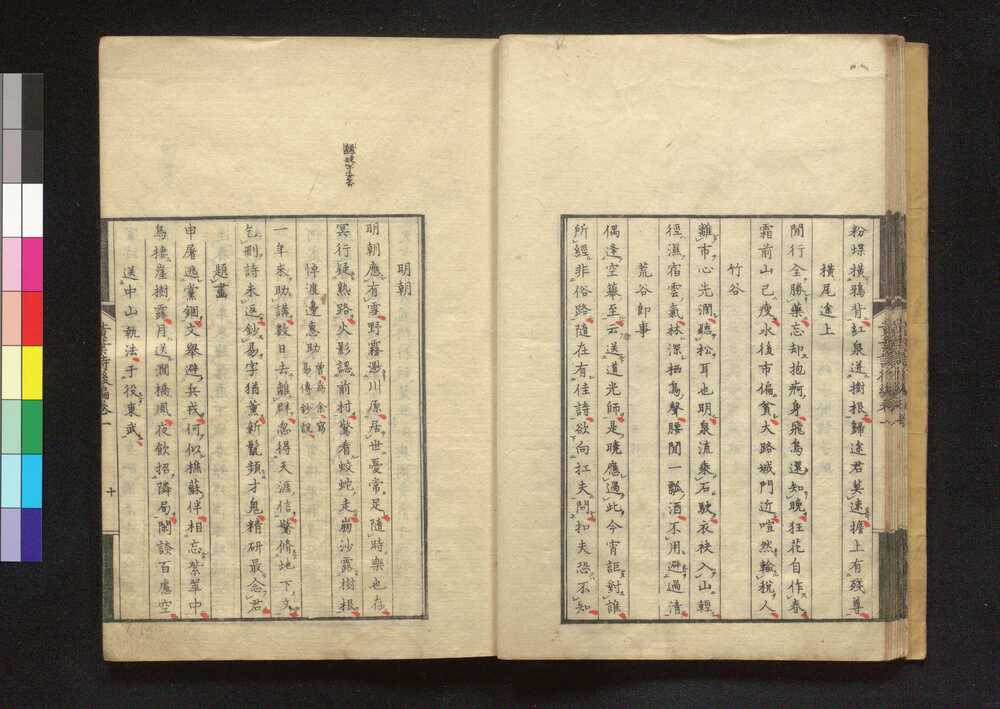 粉堞橫鴉背紅泉迸樹根歸途君莫速擔上有殘尊
橫尾途上
閒行全勝藥忘却抱痾身飛鳥還知晚狂花自作春
霜前山已瘦水後市偏貧大路城門近喧然輸稅人
竹谷
離市心先潤聽松耳也明泉流乘石駛衣袂入山輕
徑濕宿雲氣林深栖鳥聲腰間一瓢酒不用避過清
荒谷即事
偶逢空華至云送道光師是晚應過此今宵詎對誰
所經非俗路隨在有佳詩欲向扛夫問扛夫恐不知
明朝
明朝應有雪野霧溺川原居世憂常足隨時樂也存
冥行疑熟路火影認前村驚看蛟蛇走崩沙露樹根
悼渡邊惠助
曾為余寫
易傳鈔說
一年來助講數日去離群忽得天涯信驚脩地下文
刑詩未返鈔易字猶薰新鬼類才鬼精研最念君
題畫
申屠逃黨錮文舉避兵戎何似樵蘇伴相忘紫翠中
鳥棲崖樹露月送澗橋風夜飲招隣局閑談百慮空
送中山執法于役東武
十